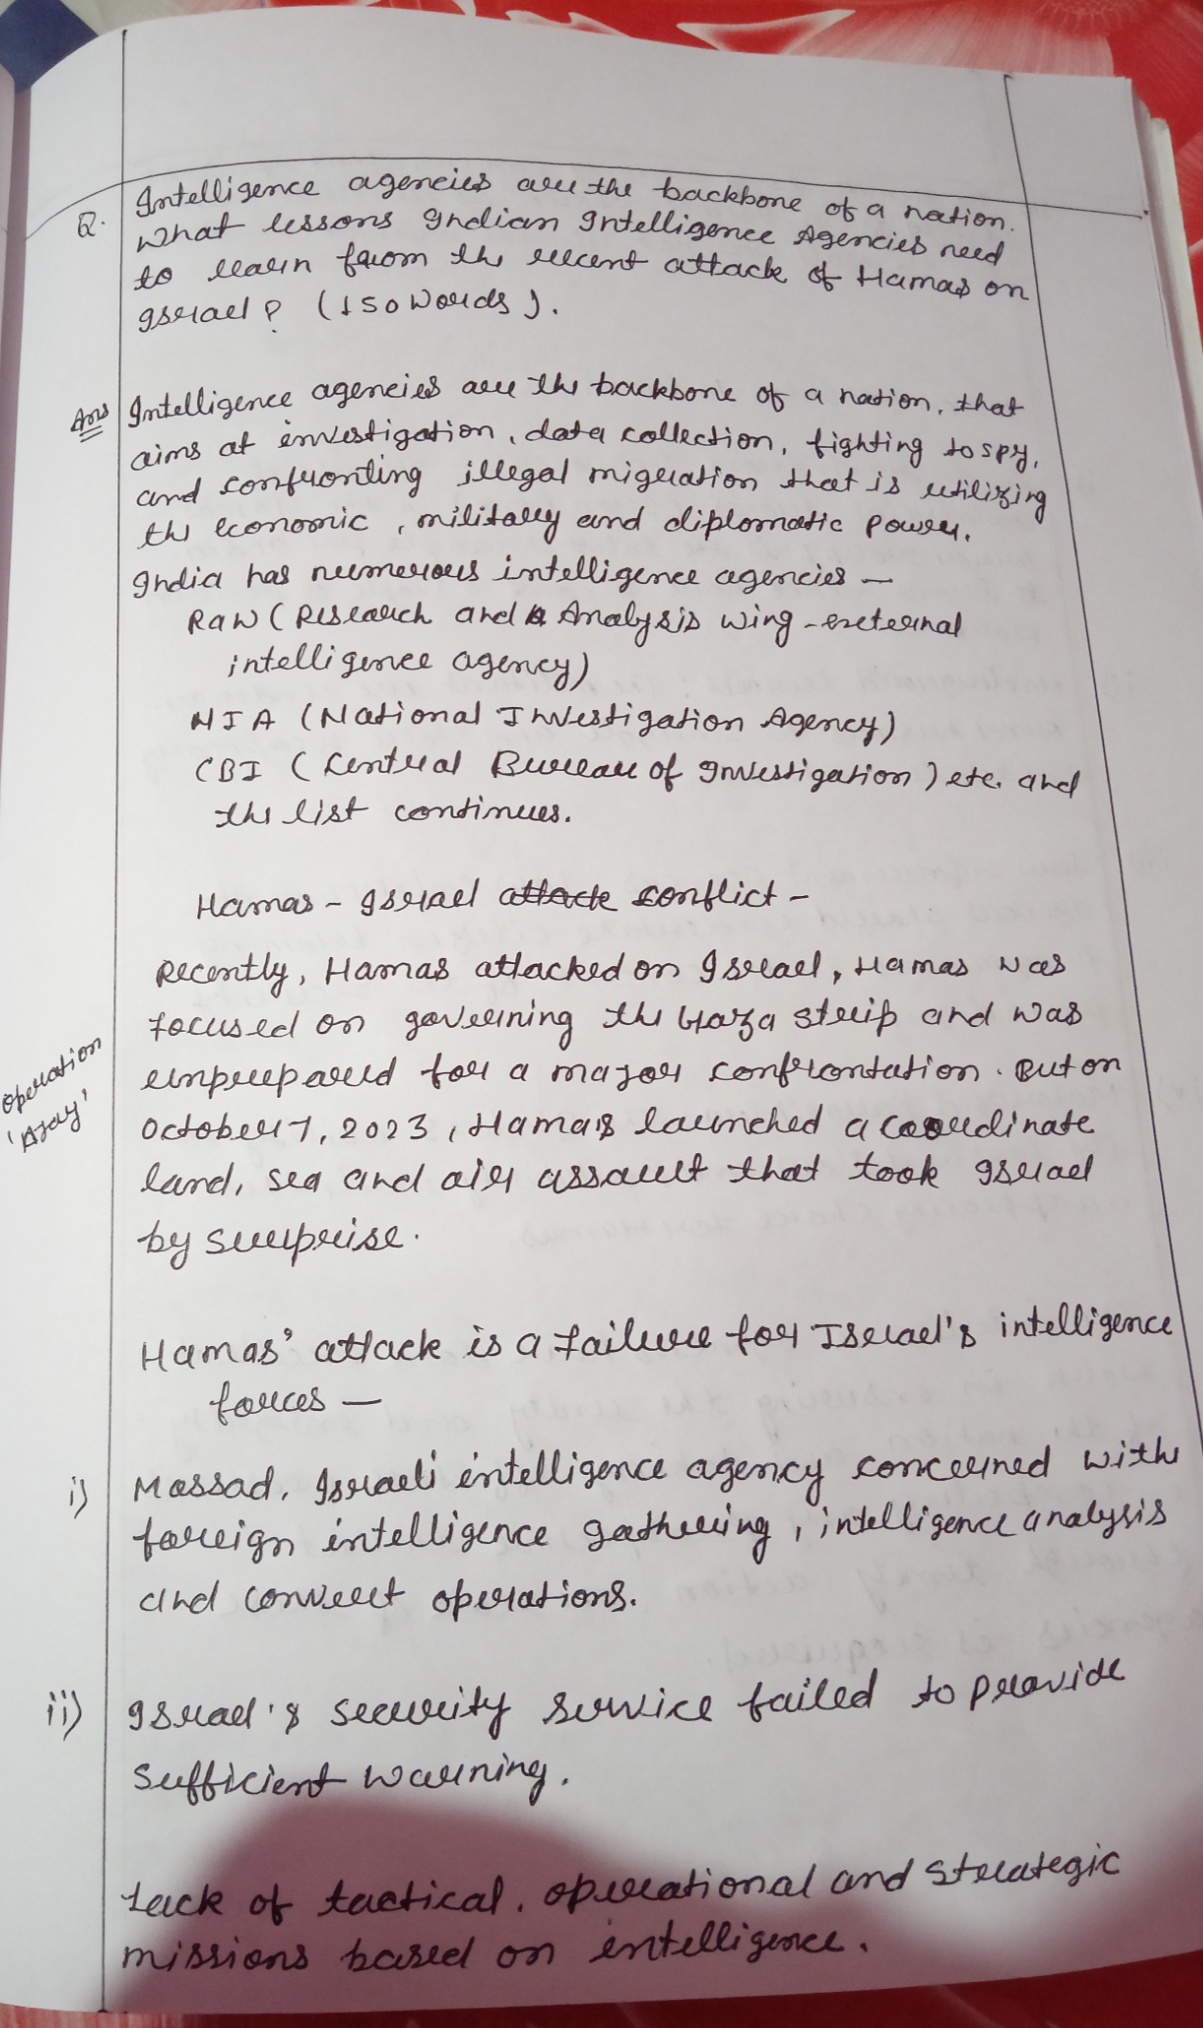 Q. Intelligence agencies are the backbone of a nation.
What lessons Indian Intelligence Agencies need
to learn from the recent attack of Hamas on
Israel? (150 words).
Ans Intelligence agencies are the backbone of a nation, that
aims at investigation, data collection, fighting to spy,
and confronting illegal migration that is utilizing
the economic, military and diplomatic power.
India has numerous intelligence agencies —
RAW (Research and Analysis Wing - external
intelligence agency)
NIA (National Investigation Agency)
CBI (Central Bureau of Investigation) etc. and
the list continues.
Hamas - Israel attack conflict -
Recently, Hamas attacked on Israel, Hamas was
focused on governing the Gaza strip and was
unprepared for a major confrontation. But on
October 7, 2023, Hamas launched a coordinate
land, sea and air assault that took Israel
by surprise.
Operation
'Ajay'
Hamas' attack is a failure for Israel's intelligence
forces —
i) Massad, Israeli intelligence agency concerned with
foreign intelligence gathering, intelligence analysis
and convert operations.
ii) Israel's security service failed to provide
sufficient warning.
Lack of tactical, operational and strategic
missions based on intelligence.